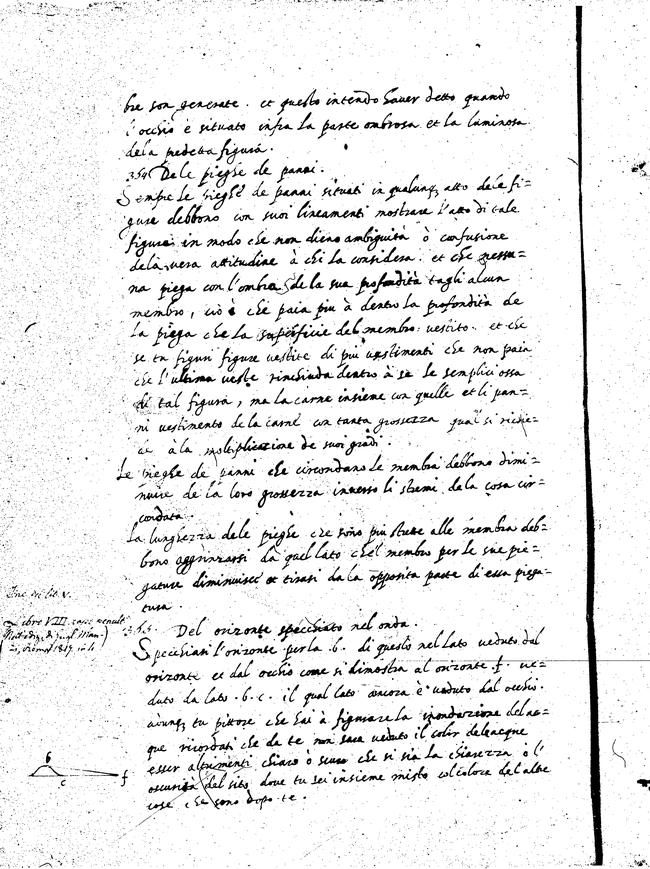 bre son generate. et questo intendo hauer detto quando
l'occhio è situato infra la parte ombrosa et la luminosa
dela predetta figura.
364 Dele pieghe de panni.
Sempre le pieghe de panni situati in qualunq, atto dele fi=
gure debbono con suoi lineamenti mostrare l'atto di tale
figura in modo che non dieno ambiguità ò confusione
dela vera attitudine à chi la considera. et che nessu=
na piega con l'ombra dela sua profondità tagli alcun
membro, ciò è che paia piu à dentro la profondità de
la piega che la superficie del membro vestito. et che
se tu figuri figure vestite di più vestimenti che non paia
che l'ultima veste rinchiuda dentro à se le semplici ossa
di tal figura, ma la carne insieme con quelle et li pan=
ni vestimento dela carne con tanta grossezza qual si richie=
de à la multiplicatione de suoi gradi.
Le pieghe de panni che circondano le membra debbono dimi=
nuire dela loro grossezza inverso li stremi dela cosa cir=
condata.
La lunghezza dele pieghe che sono piu strette alle membra deb=
bono aggrinzarsi da quel lato che'l membro per le sue pie=
gature diminuisce et tirarsi dala opposita parte di essa piega=
tura.
365. Del orizonte specchiato nel onda.
Specchiasi l'orizonte per la .6. di questo nel lato veduto dal
orizonte et dal occhio come si dimostra al orizonte .f. ve=
duto da lato .b.c. il qual lato ancora è veduto dal occhio.
adunq, tu pittore che hai à figurare la inondatione delac=
que ricordati che da te non sara veduto il color deleacque
esser altrimenti chiaro o scuro che si sia la chiarezza o l'
oscurità del sito dove tu sei insieme misto col colore del altre
cose che sono dopo te.
Libro VIII
6
c
f